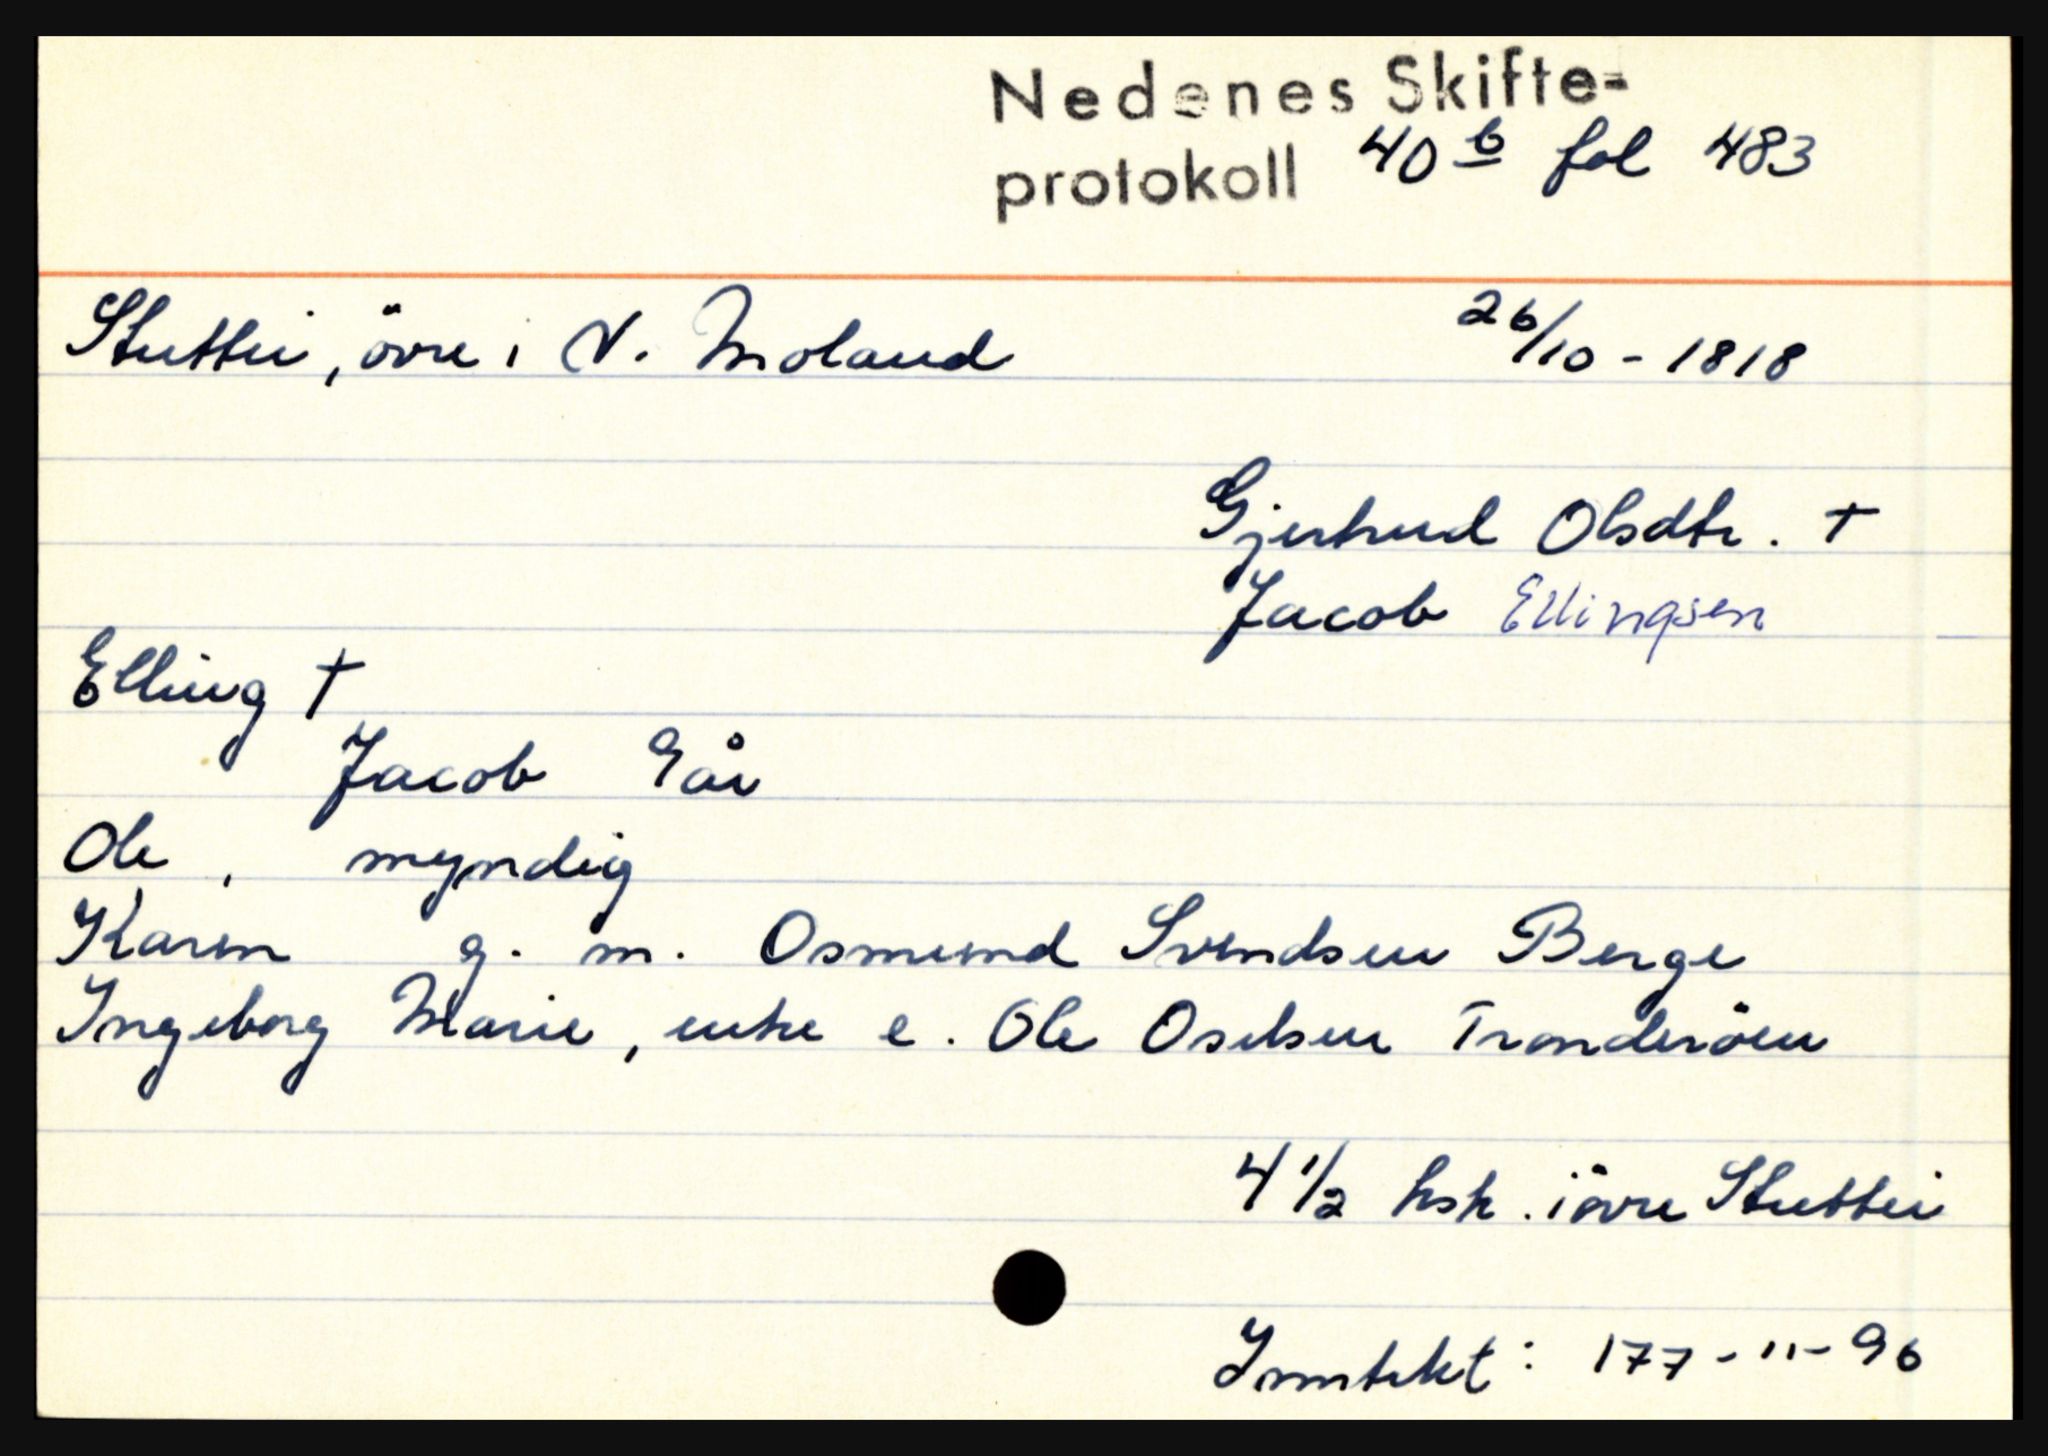 Nedenes Skifte=
protokoll 40 b fol 483
Stuttei, övre i N. Moland 26/10 - 1818
Gjertrud Olsdtr. †
Jacob Ellingsen
Elling †
Jacob 9 år
Ole, myndig
Karen g. m. Osmund Svendsen Berge
Ingeborg Marie, enke e. Ole Oselsen Tronderöen
4 1/2 hsk. i övre Stuttei
Inntekt: 177 - 11 - 96